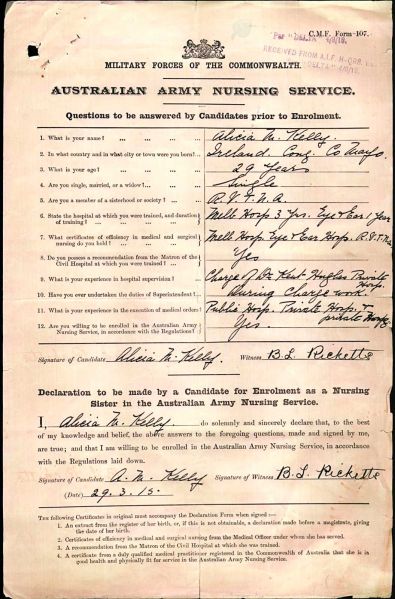 C.M.F. Form 107.
Per "DELTA" 4/9/18.
RECEIVED FROM A.I.F. H-QRS.
"DELTA" 4/9/18.
MILITARY FORCES OF THE COMMONWEALTH.
AUSTRALIAN ARMY NURSING SERVICE.
Questions to be answered by Candidates prior to Enrolment.
1. What is your name? ... ... ... ... Alicia M. Kelly.
2. In what country and in what city or town were you born? ... Ireland. Cong. Co Mayo
3. What is your age? ... ... ... ... 29 Years
4. Are you single, married, or a widow? ... ... ... Single
5. Are you a member of a sisterhood or society? ... ... R.V.T.N.A.
6. State the hospital at which you were trained, and duration of training? ... ... ... Melb Hosp 3 Yrs. Eye & Ear 1 Year
7. What certificates of efficiency in medical and surgical nursing do you hold? ... ... ... Melb Hosp Eye & Ear Hosp. R.V.T.N.A
8. Do you possess a recommendation from the Matron of the Civil Hospital at which you were trained? ... Yes
9. What is your experience in hospital supervision? ... Charge of Dr Kent Hughes Private Hosp.
10. Have you ever undertaken the duties of Superintendent? ... During Charge work.
11. What is your experience in the execution of medical orders? Public Hosp. Private Hosp. & private Hosp
12. Are you willing to be enrolled in the Australian Army Nursing Service, in accordance with the Regulations? ... Yes.
Signature of Candidate Alicia M. Kelly. Witness B.L. Ricketts
Declaration to be made by a Candidate for Enrolment as a Nursing
Sister in the Australian Army Nursing Service.
I, Alicia M. Kelly do solemnly and sincerely declare that, to the best
of my knowledge and belief, the above answers to the foregoing questions, made and signed by me,
are true; and that I am willing to be enrolled in the Australian Army Nursing Service, in accordance
with the Regulations laid down.
Signature of Candidate A. M. Kelly Signature of Witness B.L. Ricketts
(Date) 29.3.15.
The following Certificates in original must accompany the Declaration Form when signed:—
1. An extract from the register of her birth, or, if this is not obtainable, a declaration made before a magistrate, giving
the date of her birth.
2. Certificates of efficiency in medical and surgical nursing from the Medical Officer under whom she has served.
3. A recommendation from the Matron of the Civil Hospital at which she was trained.
4. A certificate from a duly qualified medical practitioner registered in the Commonwealth of Australia that she is in
good health and physically fit for service in the Australian Army Nursing Service.